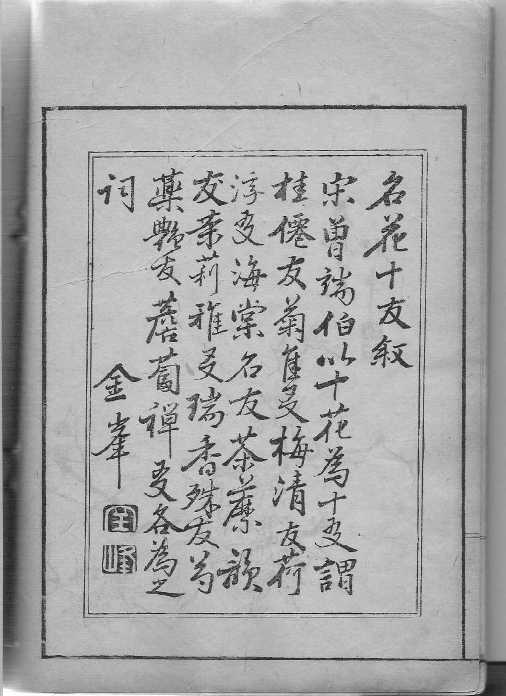 名花十友叙
宋曾端伯以十花為十友謂
桂僊友菊隹友梅清友荷
浮友海棠名友荼蘼韻
友茉莉雅友瑞香殊友芍
藥艷友薝蔔禅友各為之
词
金峯
金峰